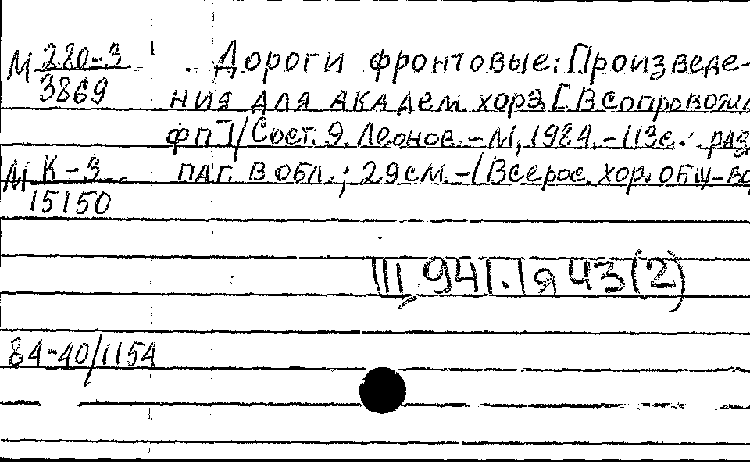 М 280-3/3869 Дороги фронтовые: Произведе-
ния для академ. хора [В сопровожд.
ф п] / Сост. Я. Леонов. - М, 1984. - 113 с. раз
М К-3/15150 паг. в обл.; 29 см. - (Всерос. хор. общ-во
Щ 941.1я43(2)
84-40/1154